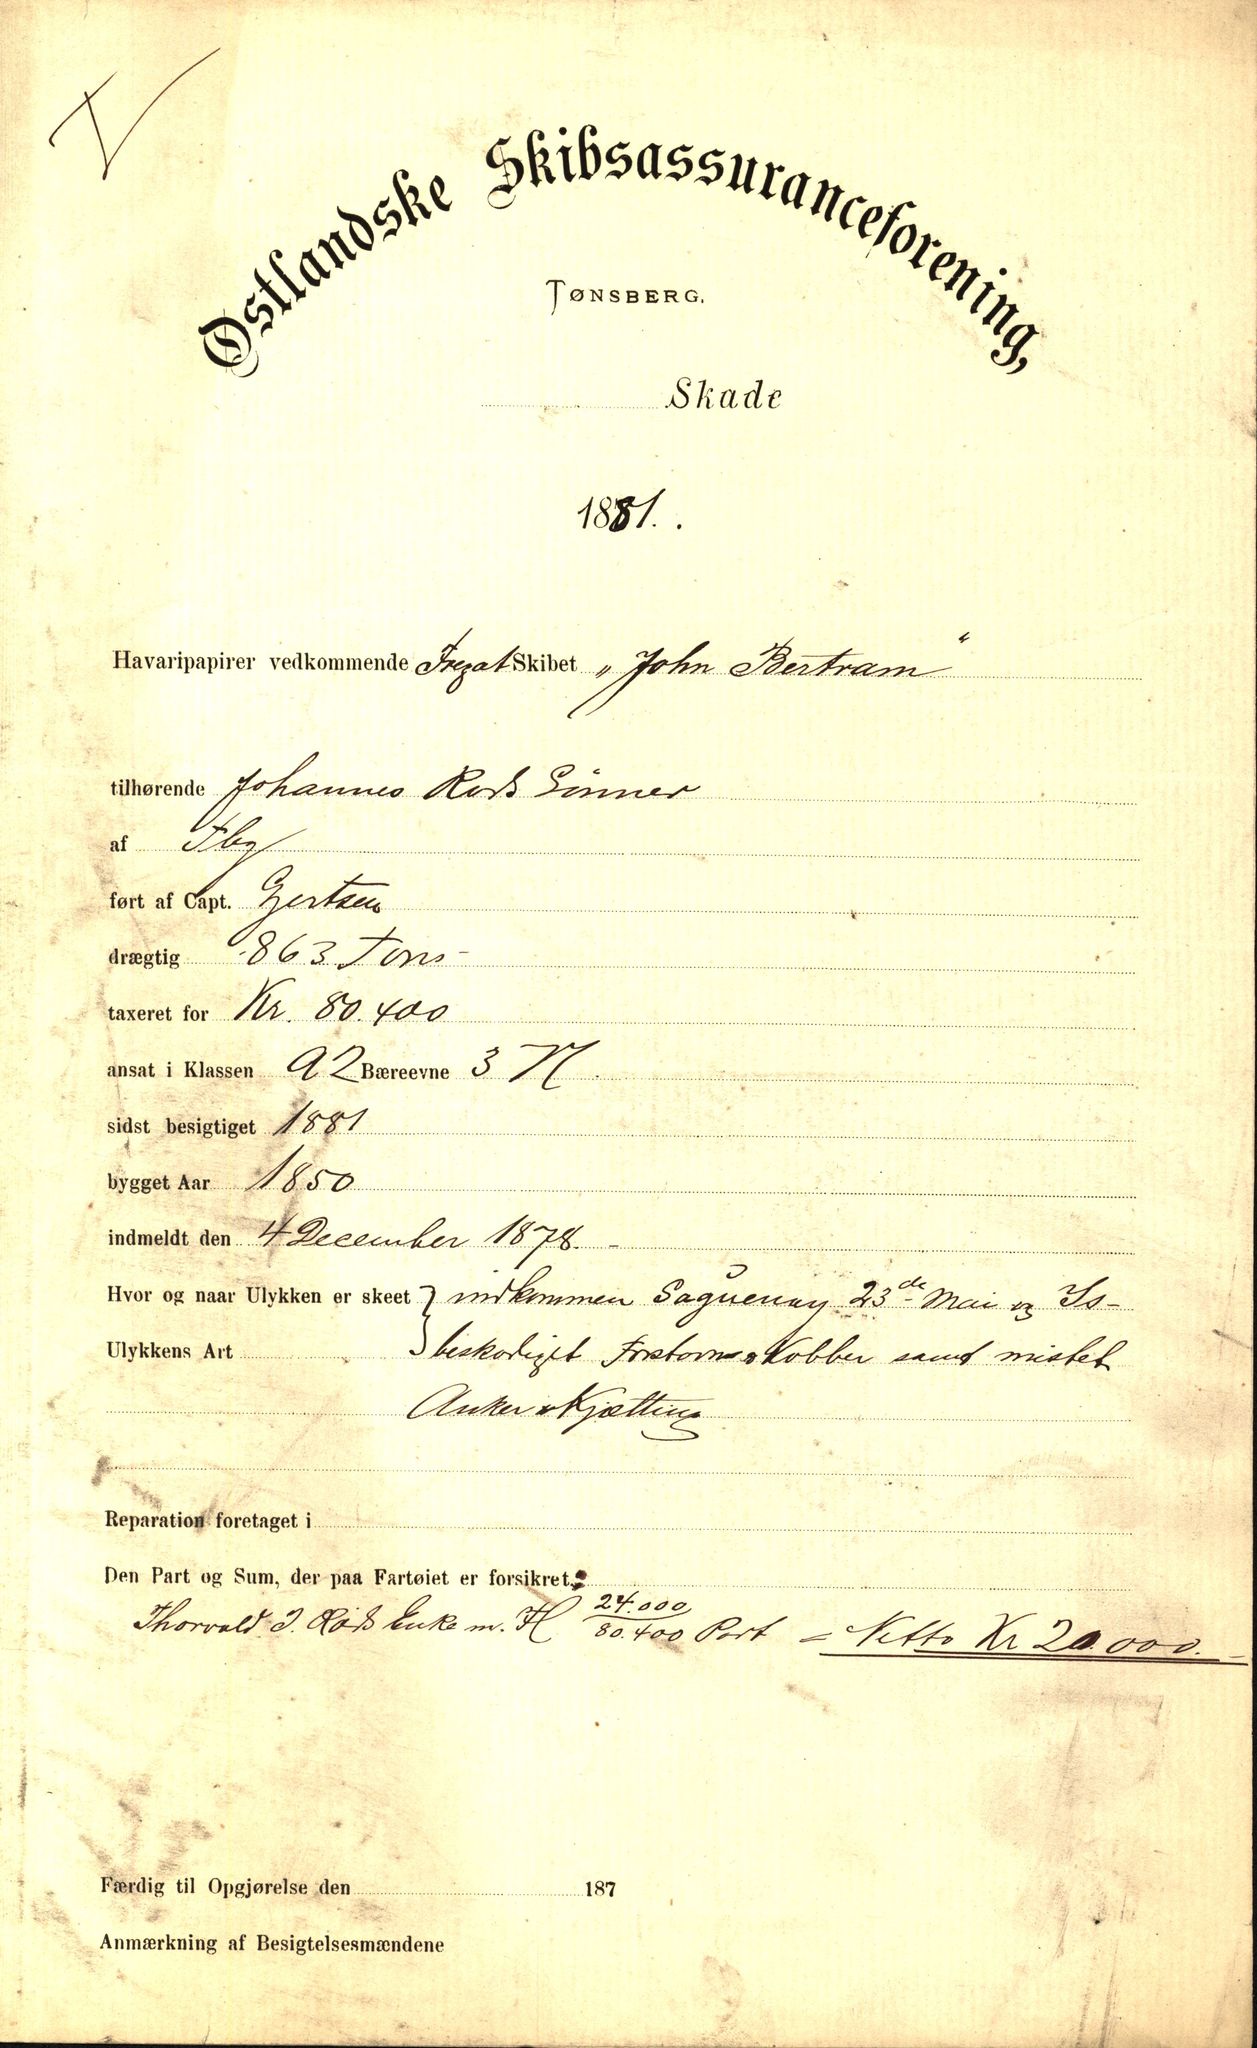 Østlandske Skibsassuranceforening,
TØNSBERG.
Skade
1881.
Havaripapirer vedkommende Fregat Skibet „John Bertram“
tilhørende Johannes Røds Sønner
af Tbg
ført af Capt. Gertsen
drægtig 863 Tons
taxeret for Kr. 80.400
ansat i Klassen A2 Bæreevne 3
sidst besigtiget 1881
bygget Aar 1850
indmeldt den 4 December 1878.
Hvor og naar Ulykken er skeet } indkommen Saguenay 23de Mai og Is-
Ulykkens Art beskadiget Forstavns Kobber samt mistet
Anker & Kjætting
Reparation foretaget i
Den Part og Sum, der paa Fartøiet er forsikret:
Thorvald J. Røds Enke m. Fl 24.000/80.400 Part = Netto Kr 20.000.
Færdig til Opgjørelse den 187
Anmærkning af Besigtelsesmændene